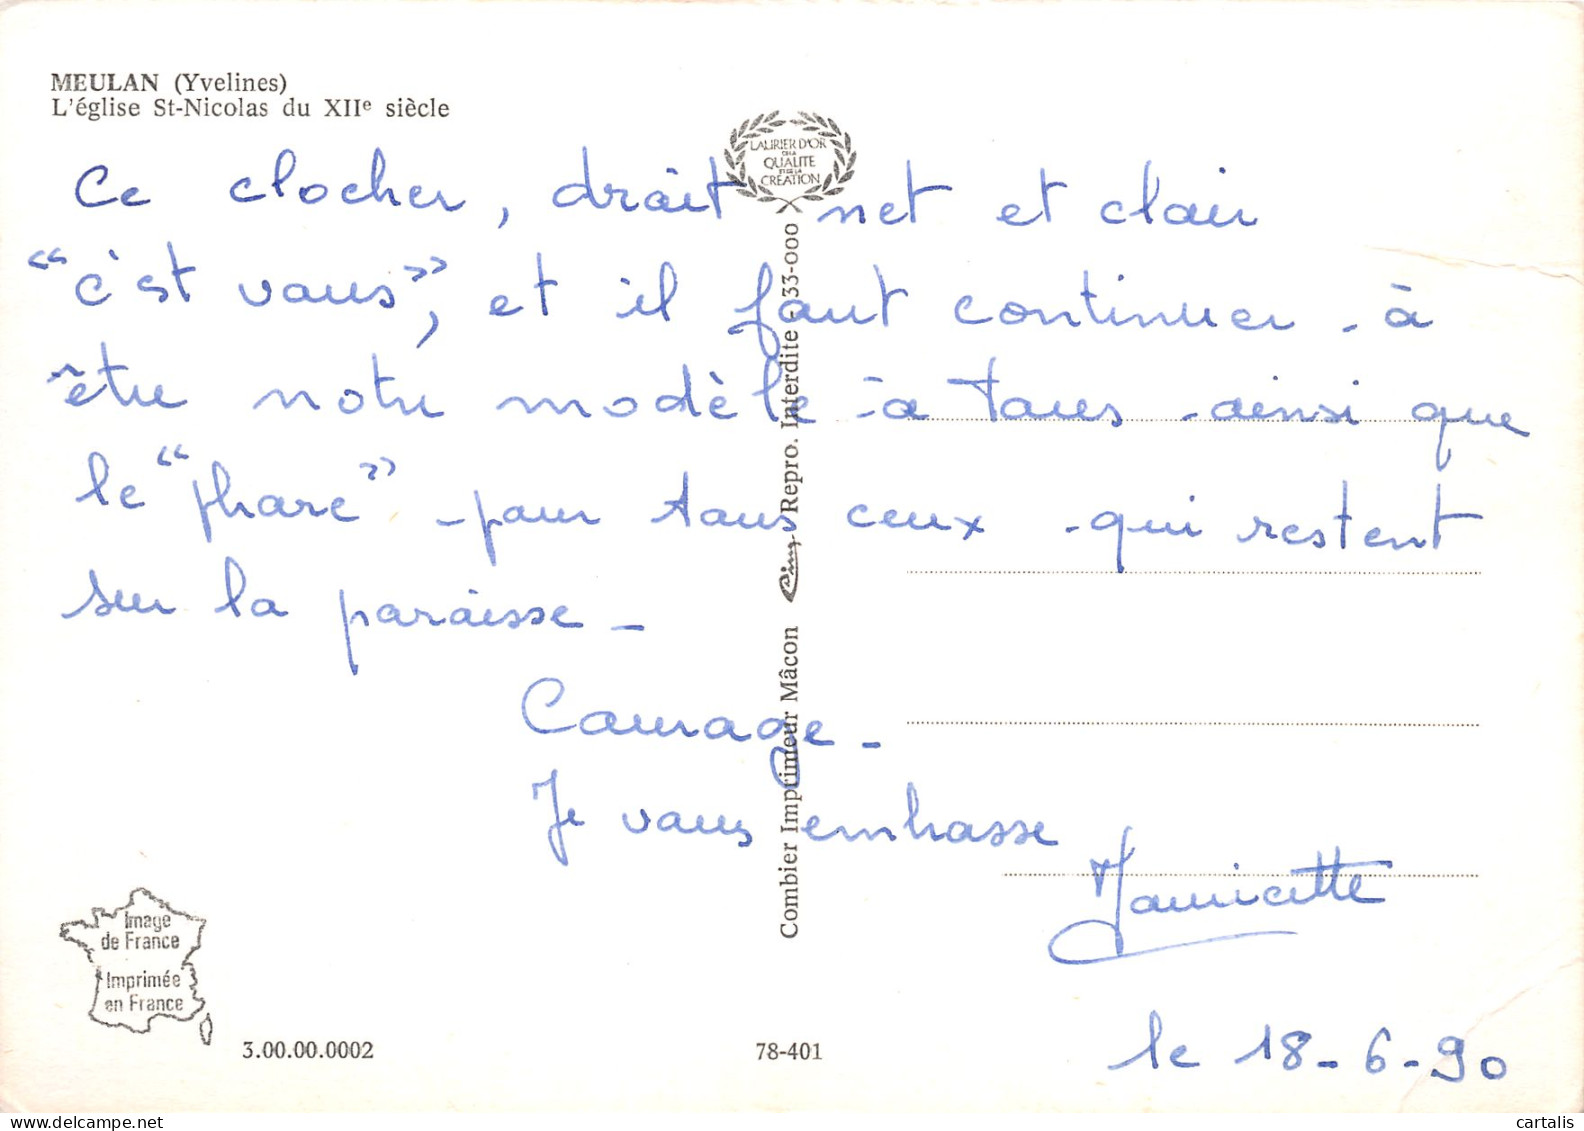 MEULAN (Yvelines)
L'église St-Nicolas du XIIe siècle
LAURIER D'OR
DE LA
QUALITE
ET DE LA
CREATION
Ce clocher, droit net et clair
"c'est vous", et il faut continuer - à
être notre modèle - à tous - ainsi que
le "phare" - pour tous ceux - qui restent
sur la paroisse -
Courage -
Je vous embrasse
le 18-6-90
Combier Imprimeur Mâcon Cim Repro. Interdite - 33-000
Image
de France
Imprimée
en France
3.00.00.0002
78-401
cartalis